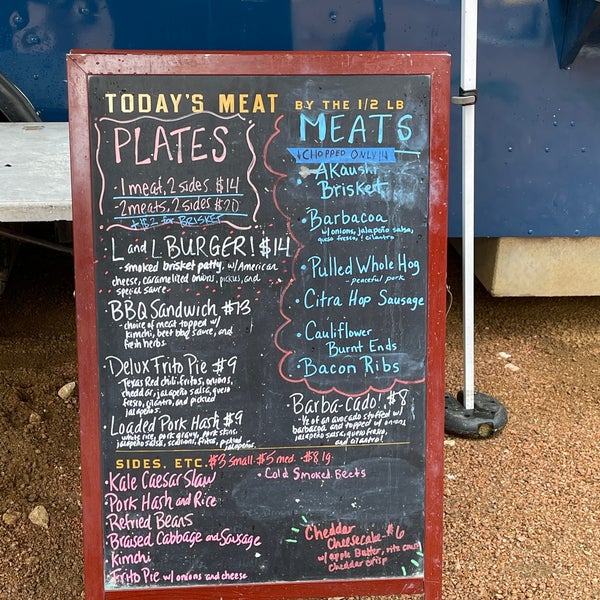 TODAY'S MEAT BY THE 1/2 LB
PLATES
·1 meat, 2 sides $14
·2 meats, 2 sides $20
+$2 for BRISKET
L and L BURGER! $14
- smoked brisket patty, w/American
cheese, caramelized onions, pickles, and
special sauce
BBQ Sandwich $13
- choice of meat topped w/
kimchi, beet bbq sauce, and
fresh herbs
Delux Frito Pie $9
Texas Red chili, fritos, onions,
cheddar, jalapeño salsa, queso
fresco, cilantro, and pickled
jalapeños.
Loaded Pork Hash $9
white rice, pork gravy,
jalapeño salsa, scallions, fritos, pickled
jalapeños
MEATS
CHOPPED ONLY
· Akaushi
Brisket
· Barbacoa
w/onions, jalapeño salsa,
queso fresco, & cilantro
· Pulled Whole Hog
- peaceful pork
· Citra Hop Sausage
· Cauliflower
Burnt Ends
· Bacon Ribs
Barba-cado!, $8
- 1/2 of an avocado stuffed w/
barbacoa and topped w/ onions
jalapeño salsa, queso fresco
and cilantro!
SIDES, ETC. $3 small $5 med. $8 lg.
· Kale Caesar Slaw
· Pork Hash and Rice
· Refried Beans
· Braised Cabbage and Sausage
· Kimchi
· Frito Pie w/ onions and cheese
· Cold Smoked Beets
Cheddar
Cheesecake - $6
w/ apple butter, ritz crust
cheddar crisp